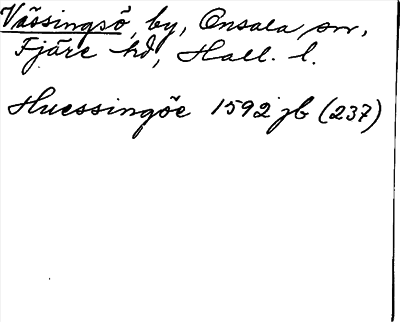 Vässingsö, by, Onsala sn,
Fjäre hd, Hall. l.
Huessingöe 1592 jb (237)